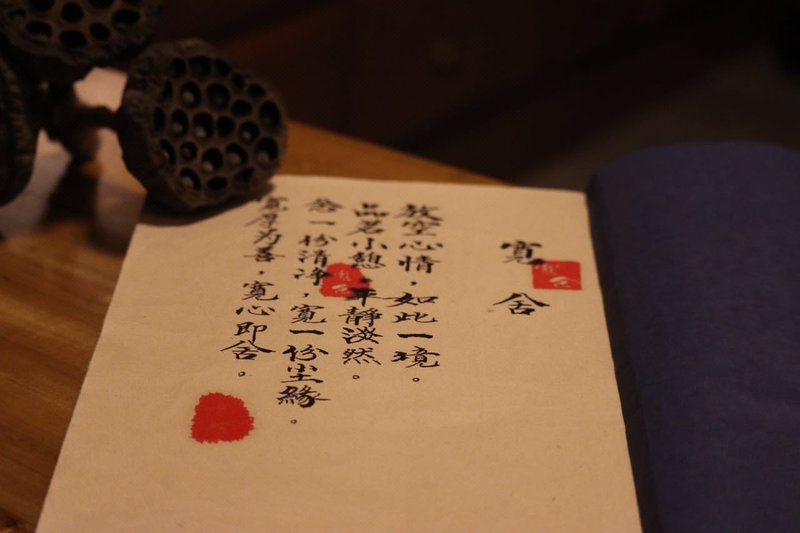 寬舍
放空心情，如此一境。
品茗小憩，平靜淡然。
念一份清淨，寬一份尘緣。
寬厚为善，寬心即舍。